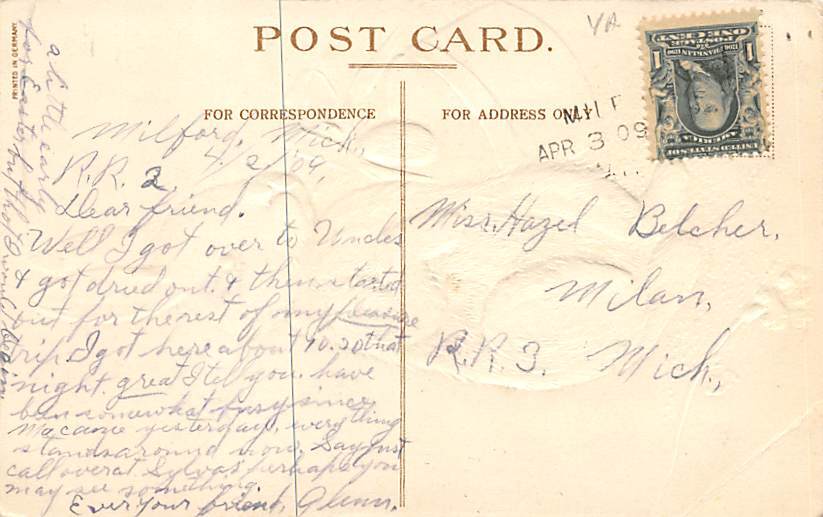 POST CARD.
FOR CORRESPONDENCE
FOR ADDRESS ONLY
PRINTED IN GERMANY
ONE CENT
1 1
AMERICA
APR 3 09
Milford, Mich.,
4/2/09,
R.R. 2
Dear friend.
Well I got over to Uncles
& got dried out. & then started
out for the rest of my pleasure
trip I got here about 10.30 that
night. great I tell you. have
ben somewhat busy since
Ma came yesterday, everything
stands around now. Say just
call over at Sylvas' perhaps you
may see something.
Ever your friend, Glenn.
a little early
for Easter but tho't I would begin
Miss. Hazel Belcher.
Milan,
R.R. 3. Mich.,